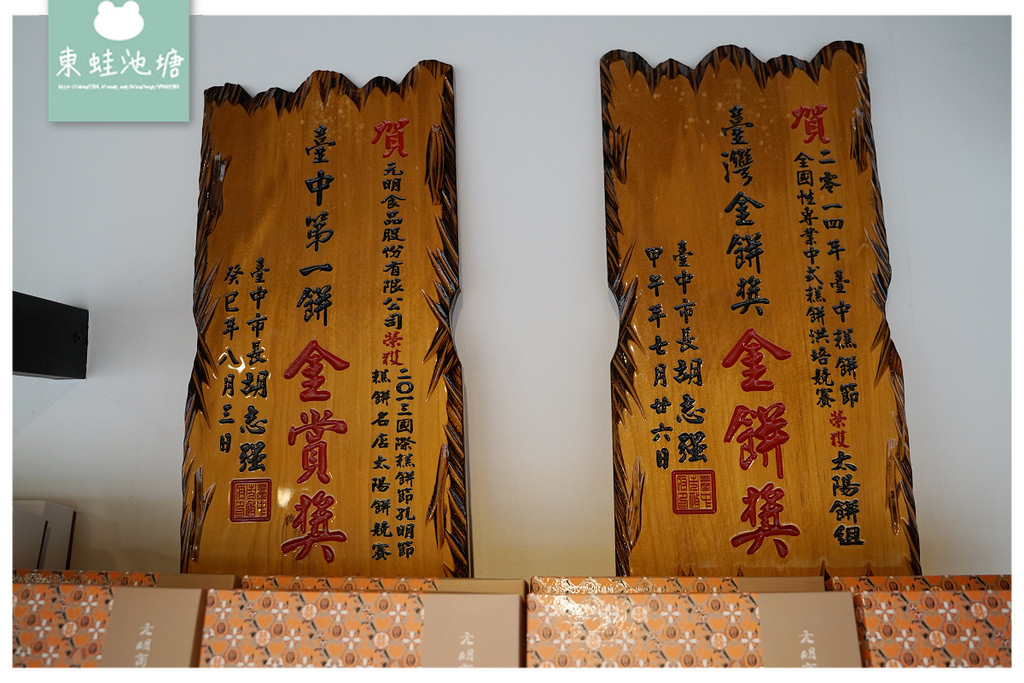 東蛙池塘
賀
二零一四年臺中糕餅節
全國性專業中式糕餅烘培競賽
榮獲太陽餅組
臺灣金餅獎金餅獎
臺中市長胡志強
甲午年七月廿六日
賀
元明食品股份有限公司榮獲
二〇一三國際糕餅節孔明節
糕餅名店太陽餅競賽
臺中第一餅金賞獎
臺中市長胡志強
癸巳年八月三日
元明商
元明
元明商